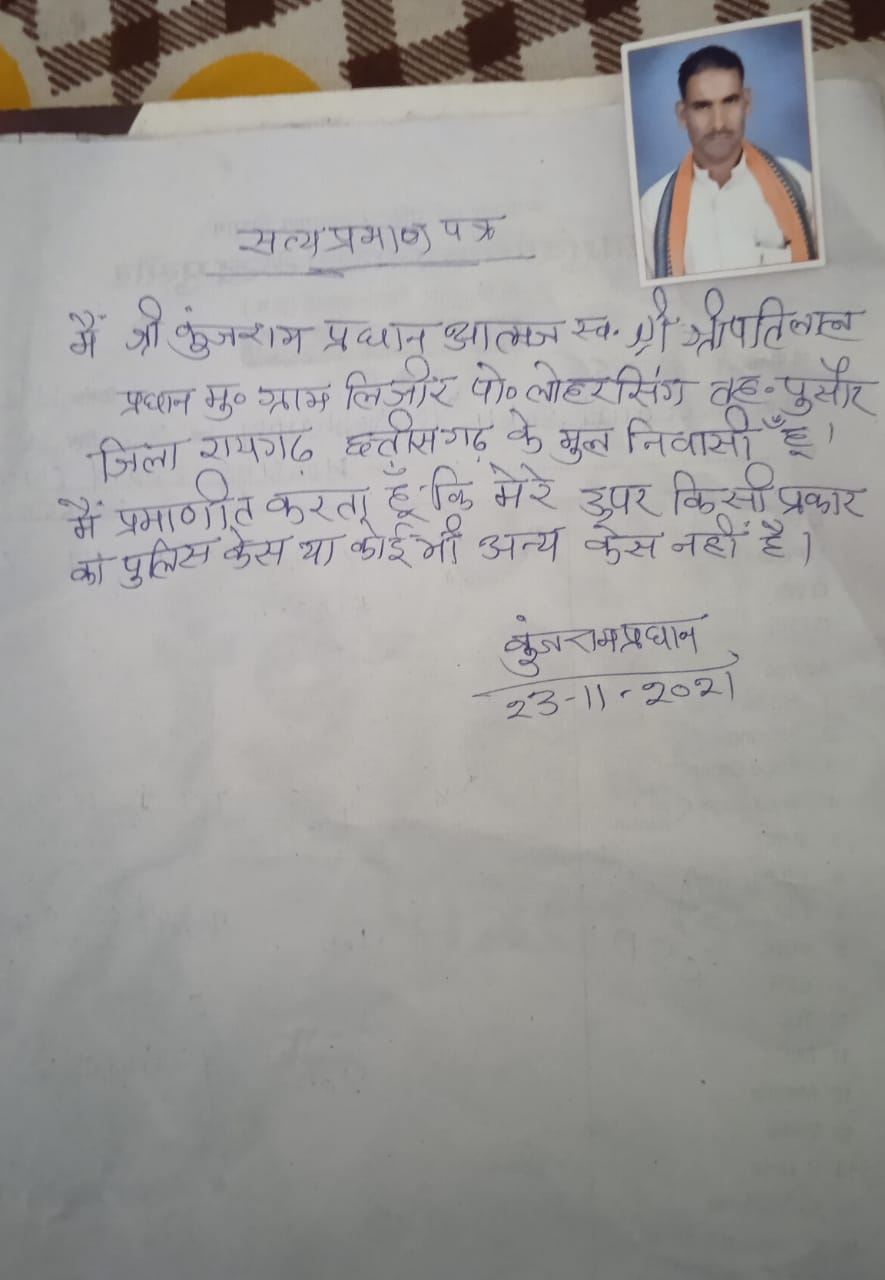 सत्य प्रमाण पत्र
मैं श्री कुंजराम प्रधान आत्मज स्व. श्री श्रीपतिलाल
प्रधान मु० ग्राम लिंजीर पो० लोहरसिंग तह. पुसौर
जिला रायगढ़ छत्तीसगढ़ के मुल निवासी हूँ।
मैं प्रमाणीत करता हूँ कि मेरे उपर किसी प्रकार
का पुलिस केस या कोई भी अन्य केस नहीं है।
कुंजराम प्रधान
23-11-2021